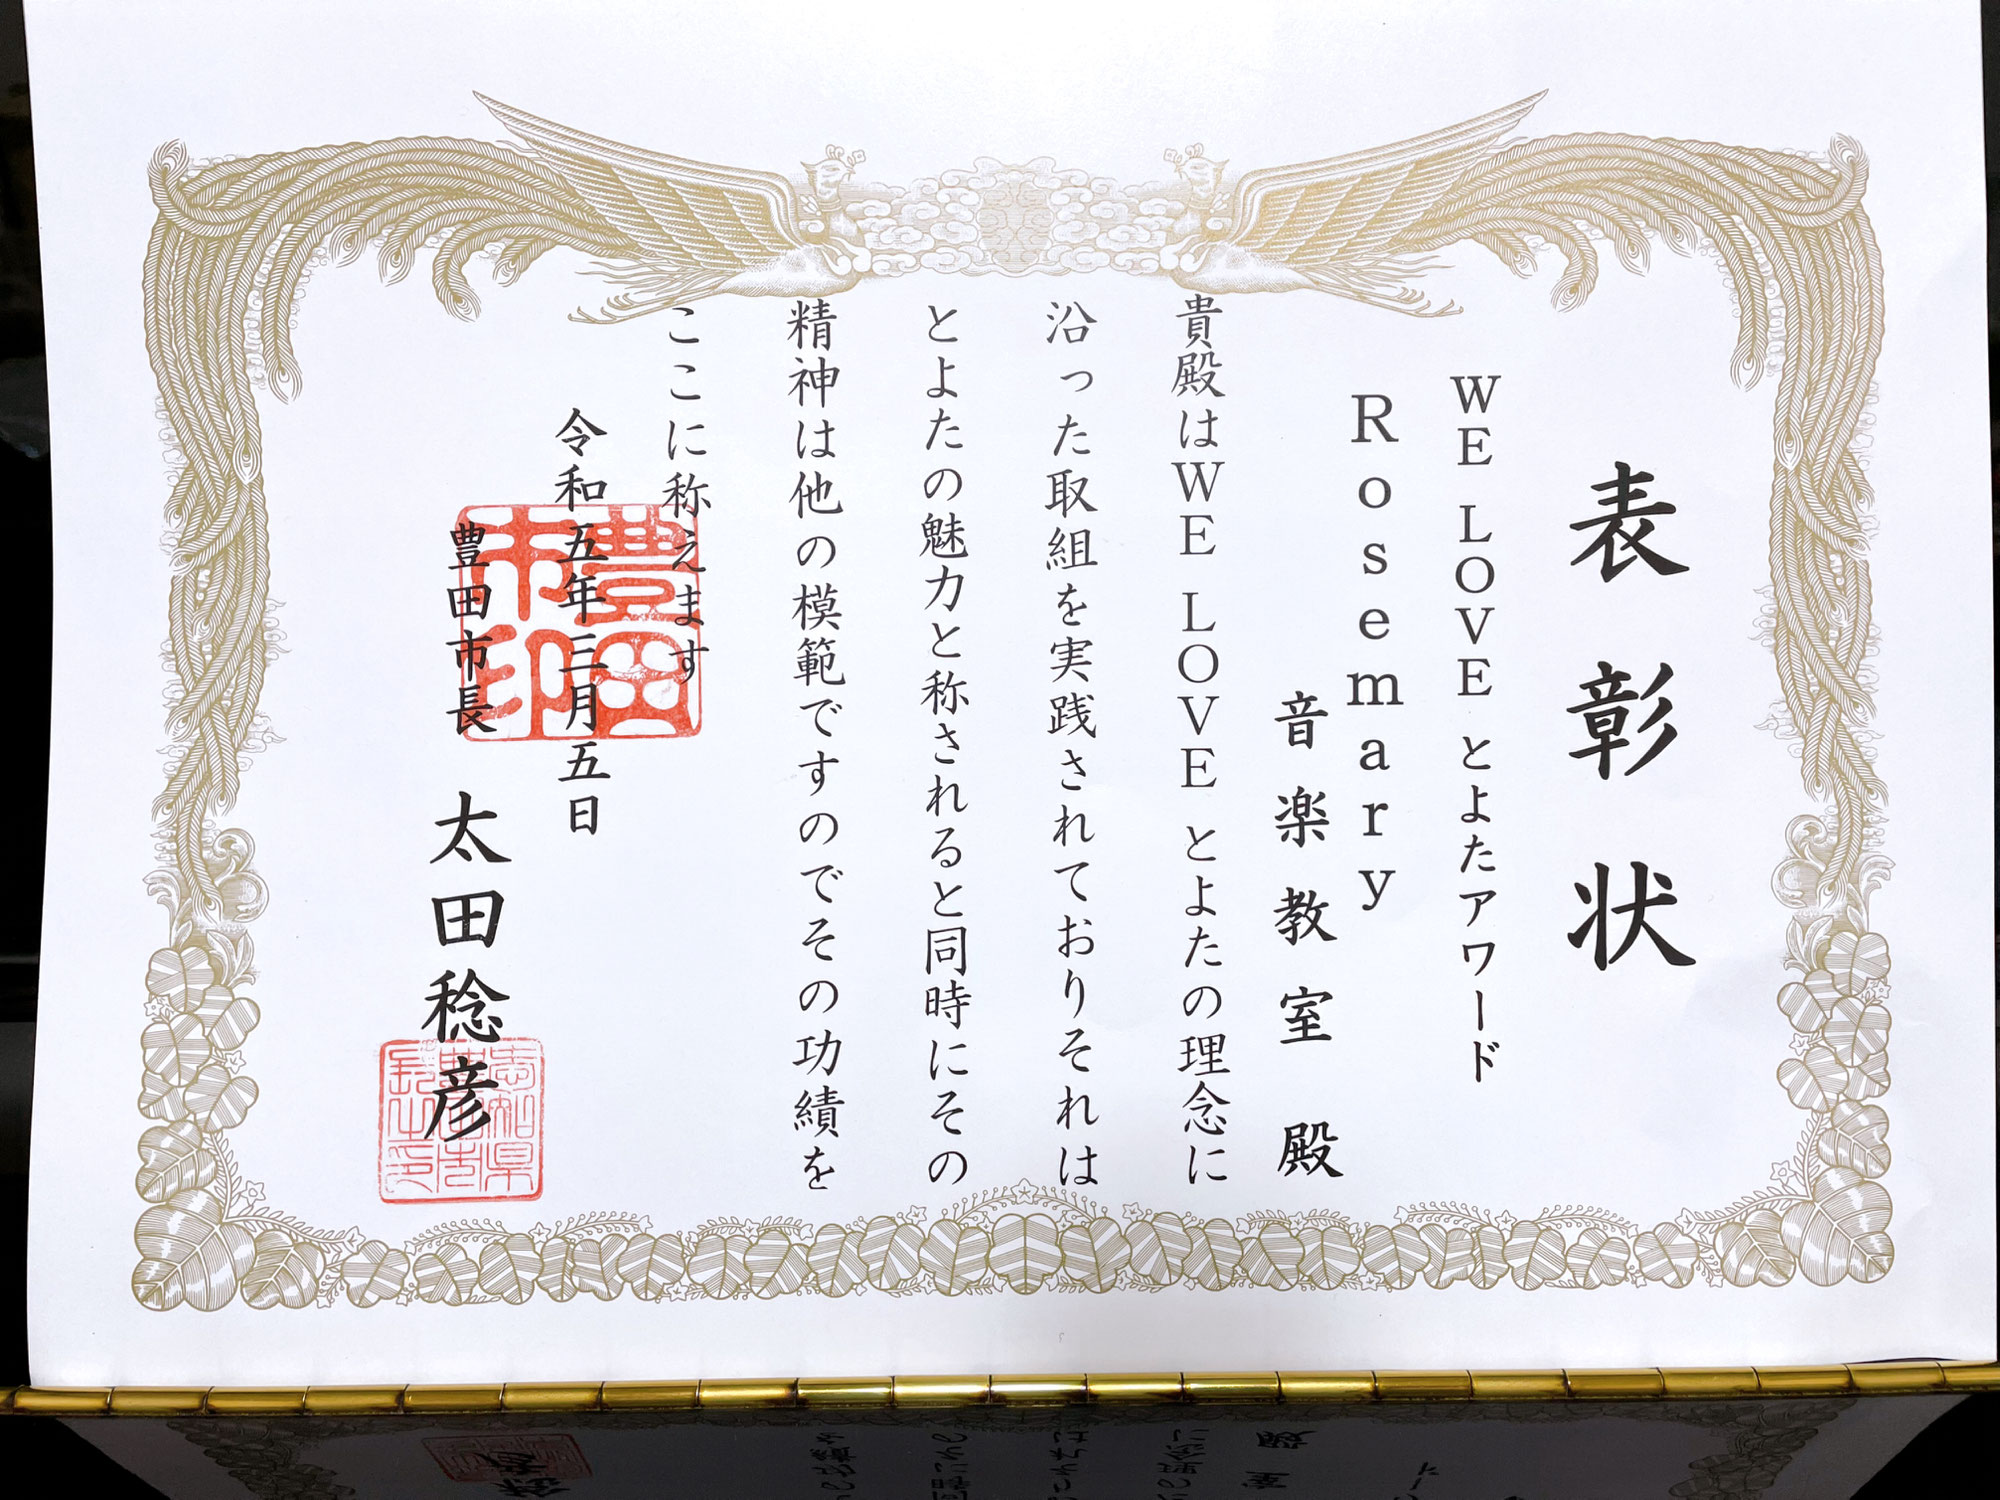 表彰状
WE LOVE とよたアワード
Rosemary
音楽教室 殿
貴殿はWE LOVE とよたの理念に
沿った取組を実践されておりそれは
とよたの魅力と称されると同時にその
精神は他の模範ですのでその功績を
ここに称えます
令和五年三月五日
豊田市長 太田稔彦
豊田市印
愛知県豊田市長之印